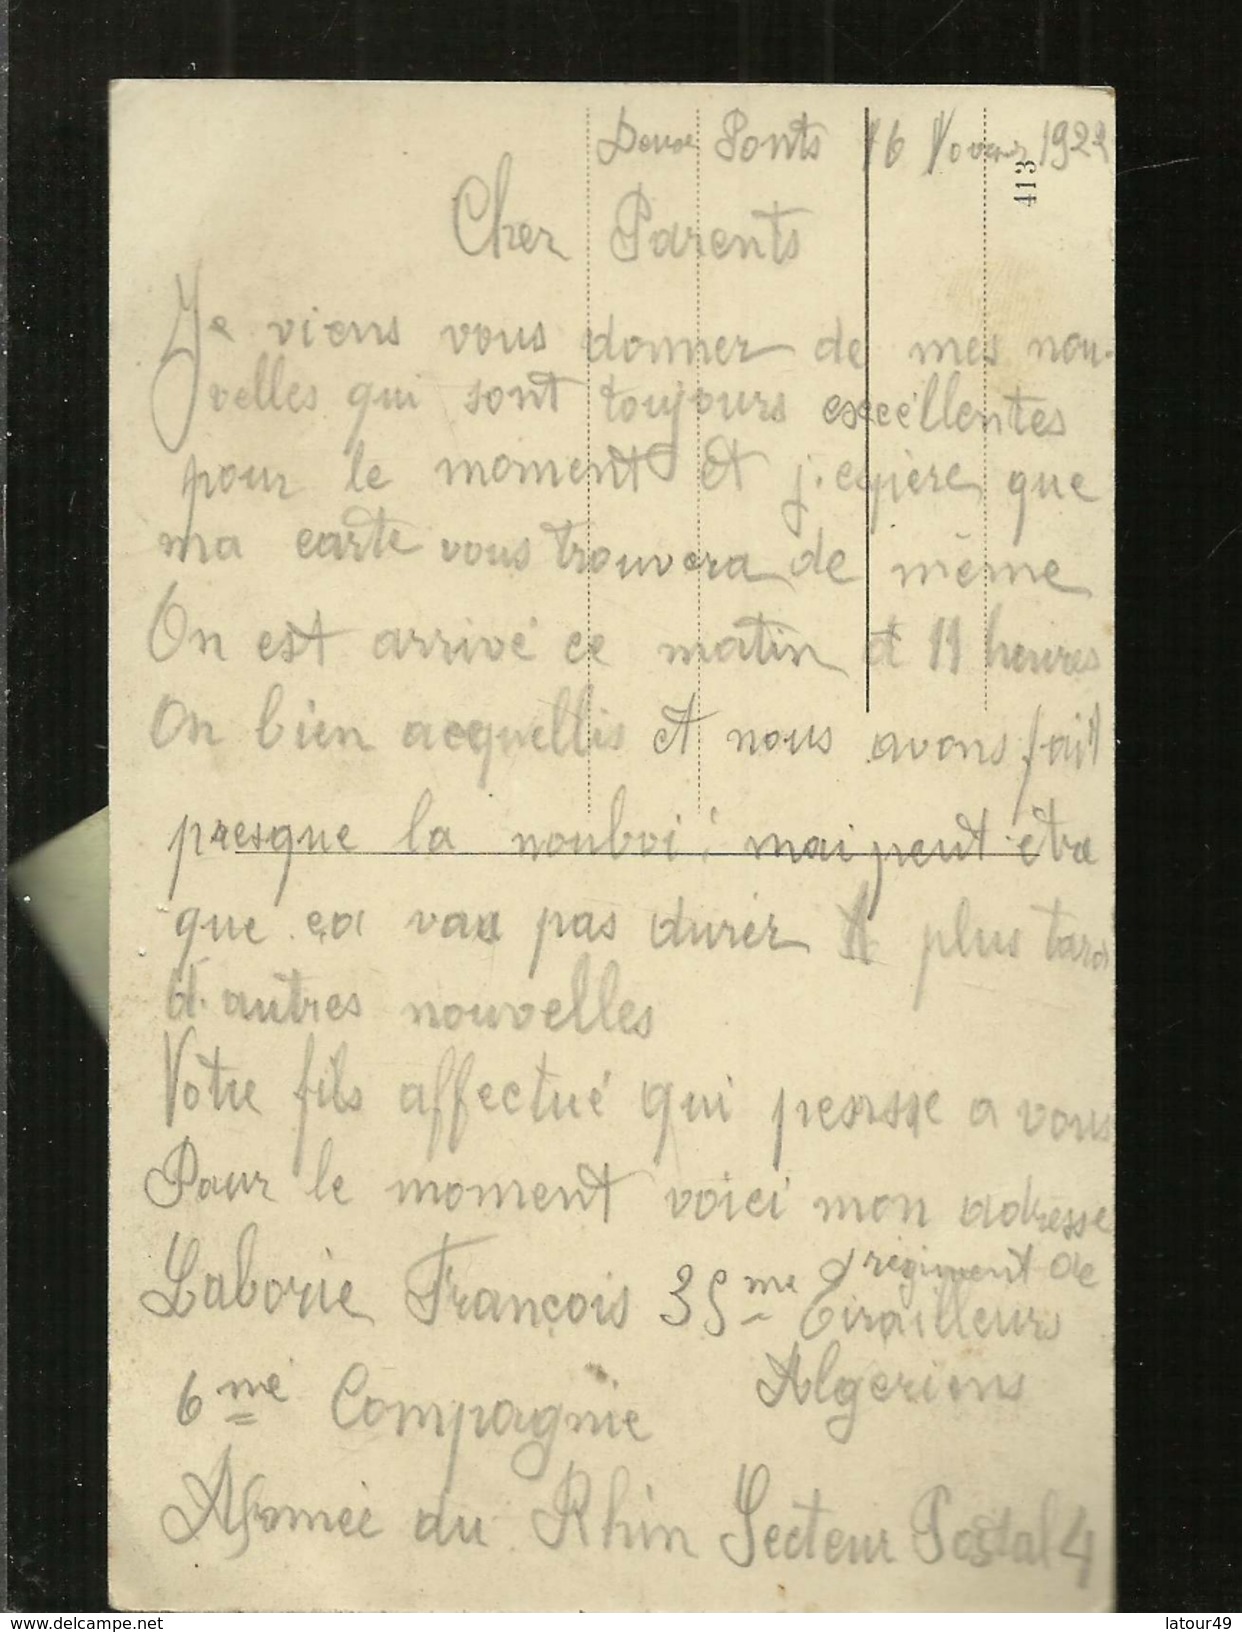 Deux Ponts 16 Novembr 1922
413
Cher Parents
Je viens vous donner de mes nou-
velles qui sont toujours excéllentes
pour le moment et j'epière que
ma carte vous trouvera de même
On est arrivé ce matin a 11 heures
On bien acquellis et nous avons fait
presque la nouboi; mai peut-etre
que ça vaa pas durer A plus tard
d'autres nouvelles
Votre fils affectué qui pensse a vous
Pour le moment voici mon adresse
Laborie François 35me régiment de
Tirailleurs
Algeriens
6me Compagnie
Armée du Rhin Secteur Postal 4
www.delcampe.net
latour49